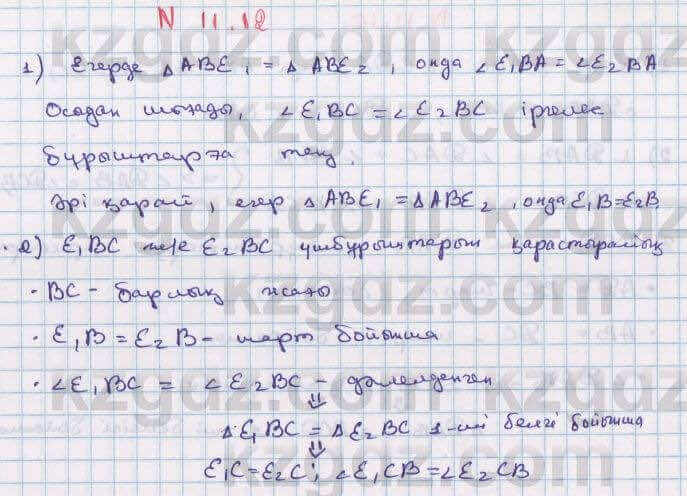 N 11.12
1) Егерде △ ABE₁ = △ ABE₂, онда ∠E₁BA = ∠E₂BA
Осодан шығады, ∠E₁BC = ∠E₂BC іргелес
бұрыштарға тең.
Әрі қарай, егер △ABE₁ = △ABE₂, онда E₁B=E₂B
2) E₁BC және E₂BC үшбұрыштарын қарастыралық
· BC - барлық жағы
· E₁B = E₂B - шарт бойынша
· ∠E₁BC = ∠E₂BC - дәлелденген
⇓
△E₁BC = △E₂BC 1-ші белгі бойынша
⇓
E₁C=E₂C; ∠E₁CB=∠E₂CB
kzgdz.com